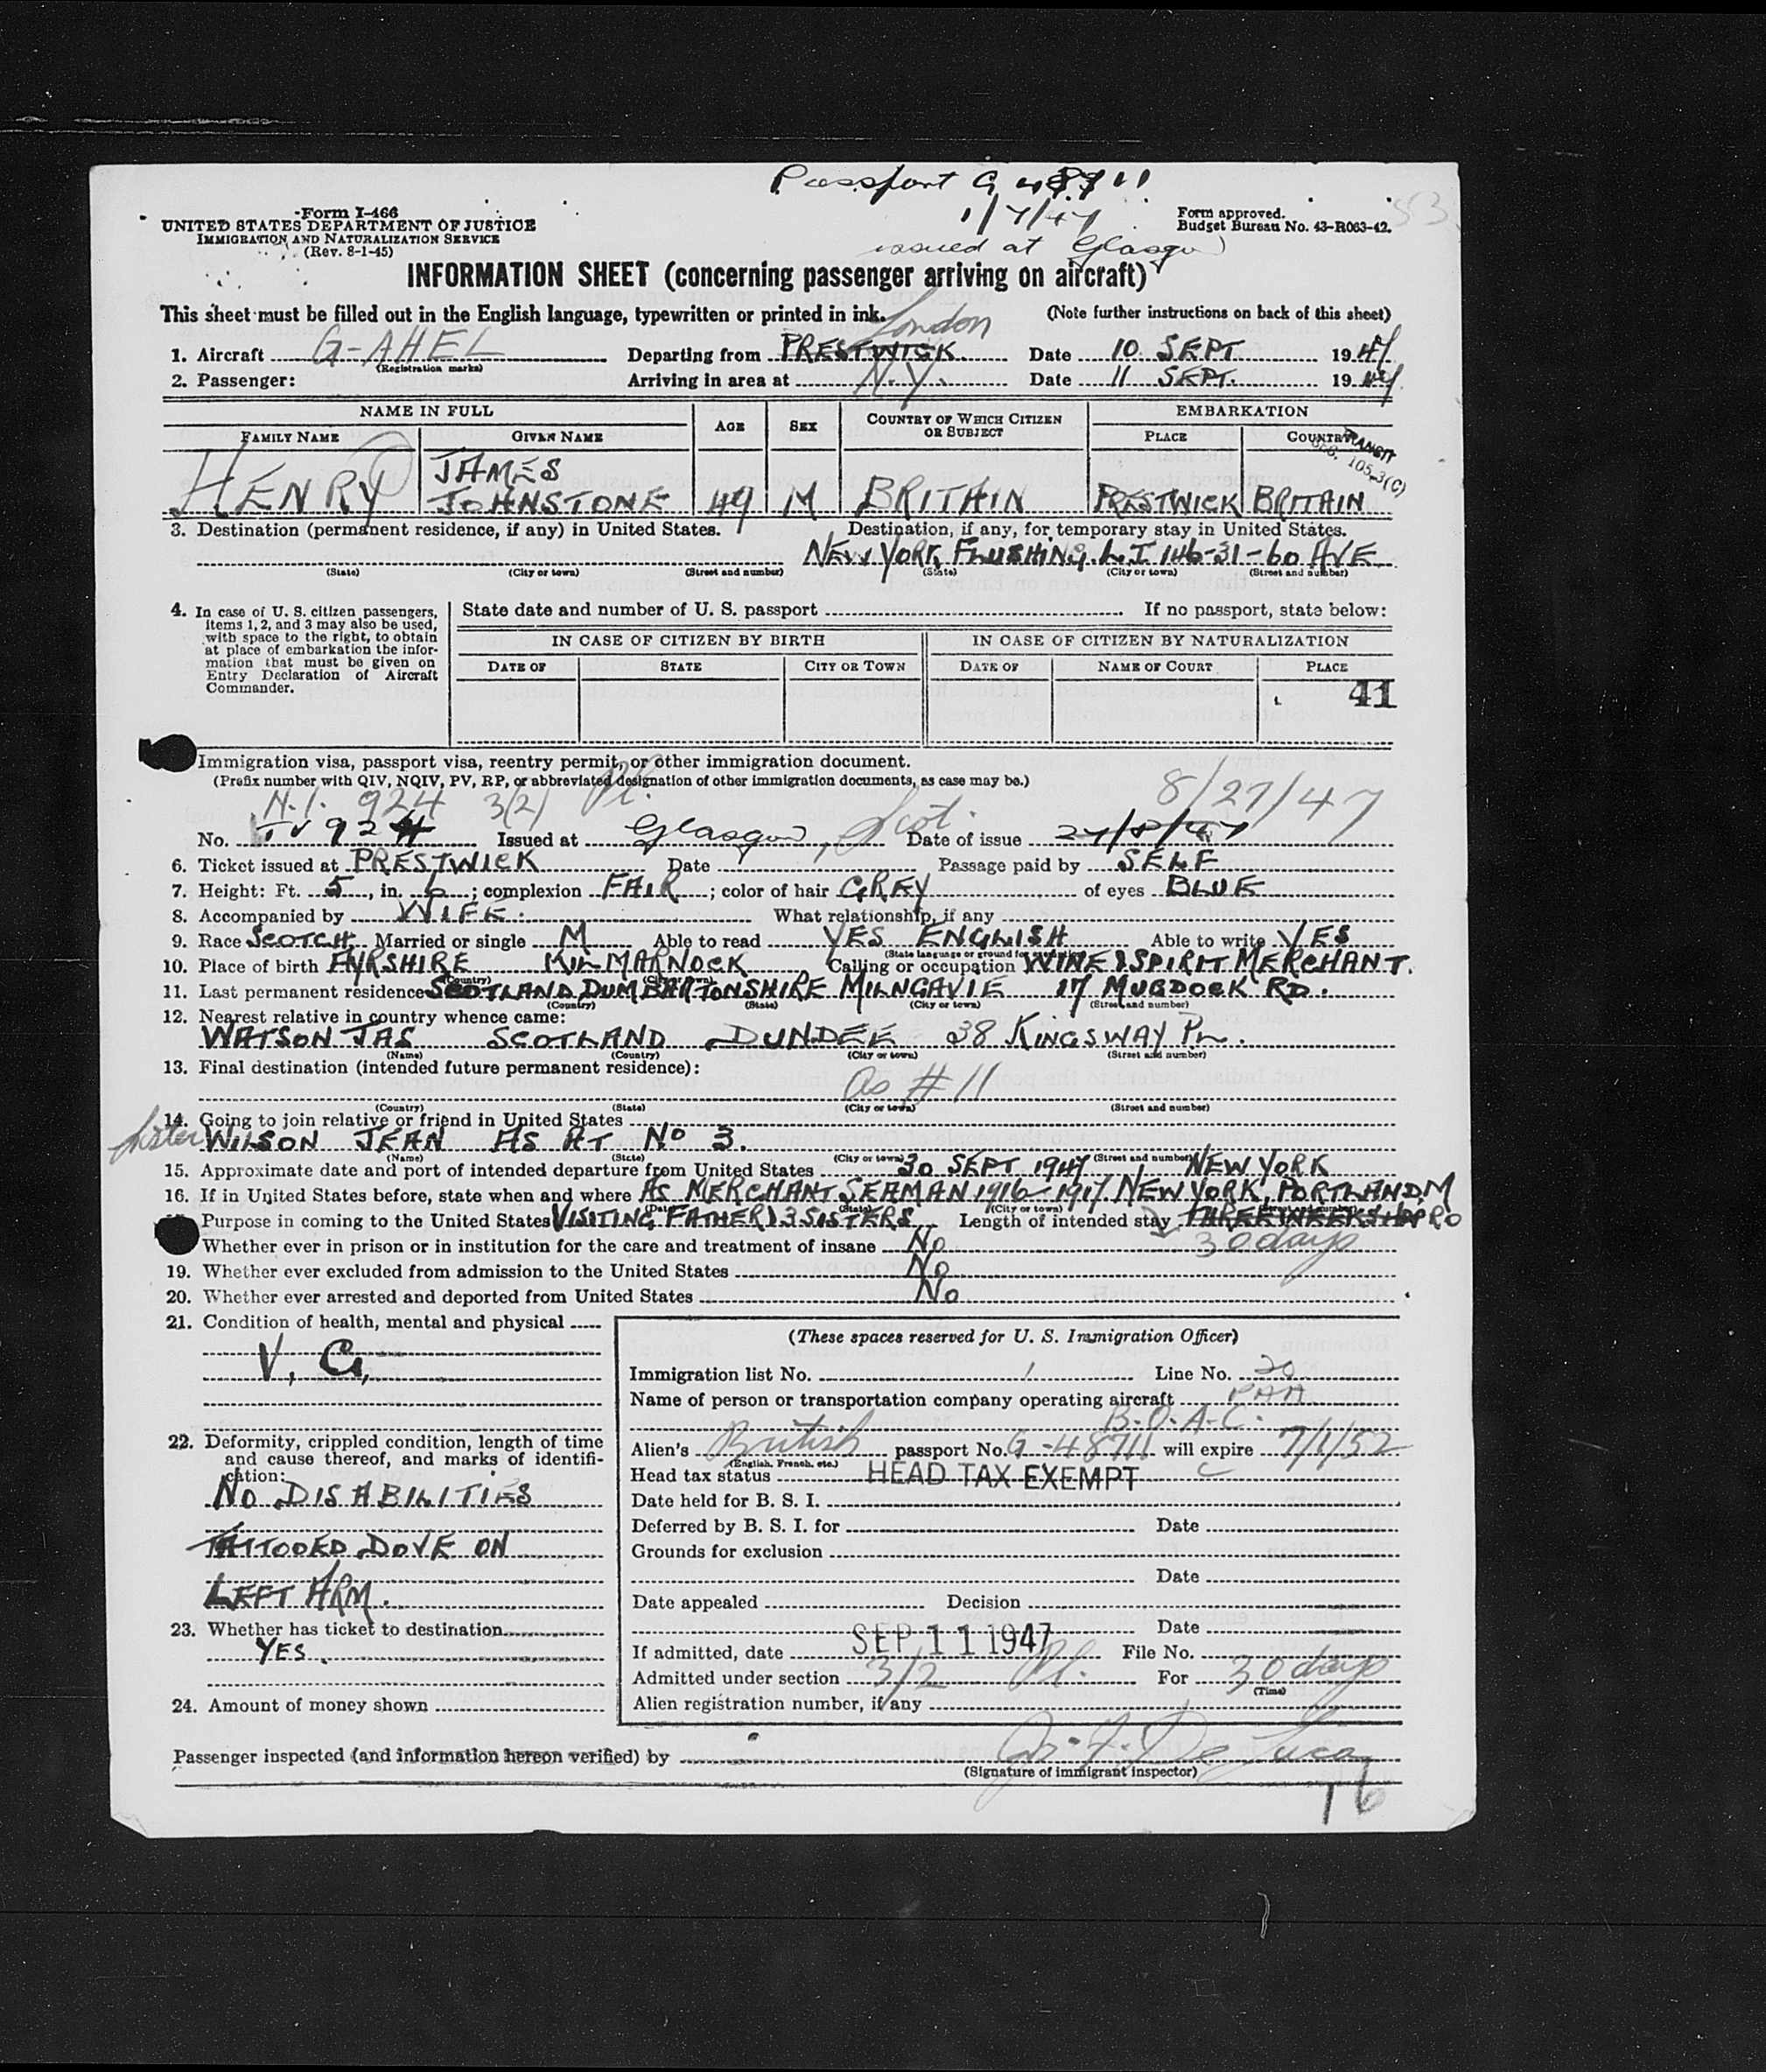 Passport G 48711
1/7/47
issued at Glasgow
53
Form I-466
UNITED STATES DEPARTMENT OF JUSTICE
IMMIGRATION AND NATURALIZATION SERVICE
(Rev. 8-1-45)
Form approved.
Budget Bureau No. 43-R063-42.
INFORMATION SHEET (concerning passenger arriving on aircraft)
This sheet must be filled out in the English language, typewritten or printed in ink. (Note further instructions on back of this sheet)
London
1. Aircraft G-AHEL Departing from PRESTWICK Date 10 SEPT 1947
(Registration marks)
2. Passenger: Arriving in area at N.Y. Date 11 SEPT. 1947
NAME IN FULL AGE SEX COUNTRY OF WHICH CITIZEN OR SUBJECT EMBARKATION
FAMILY NAME GIVEN NAME PLACE COUNTRY
TRANSIT
SEC. 105.3(C)
HENRY JAMES JOHNSTONE 49 M BRITAIN PRESTWICK BRITAIN
3. Destination (permanent residence, if any) in United States. Destination, if any, for temporary stay in United States.
NEW YORK, FLUSHING. L.I 146-31-60 AVE
(State) (City or town) (Street and number) (State) (City or town) (Street and number)
4. In case of U. S. citizen passengers, items 1, 2, and 3 may also be used, with space to the right, to obtain at place of embarkation the information that must be given on Entry Declaration of Aircraft Commander.
State date and number of U. S. passport If no passport, state below:
IN CASE OF CITIZEN BY BIRTH IN CASE OF CITIZEN BY NATURALIZATION
DATE OF STATE CITY OR TOWN DATE OF NAME OF COURT PLACE
41
Immigration visa, passport visa, reentry permit, or other immigration document.
(Prefix number with QIV, NQIV, PV, RP, or abbreviated designation of other immigration documents, as case may be.)
N.I. 924 3(2) Pl. 8/27/47
No. TV 924 Issued at Glasgow, Scot. Date of issue 27/8/47
6. Ticket issued at PRESTWICK Date Passage paid by SELF
7. Height: Ft. 5, in. 6; complexion FAIR; color of hair GREY of eyes BLUE
8. Accompanied by WIFE. What relationship, if any
9. Race SCOTCH. Married or single M Able to read YES ENGLISH Able to write YES
(State language or ground for exemption)
10. Place of birth AYRSHIRE KILMARNOCK Calling or occupation WINE & SPIRIT MERCHANT.
(Country) (City or town)
11. Last permanent residence SCOTLAND DUMBARTONSHIRE MILNGAVIE 17 MUGDOCK RD.
(Country) (State) (City or town) (Street and number)
12. Nearest relative in country whence came:
WATSON JAS SCOTLAND DUNDEE 38 KINGSWAY PL.
(Name) (Country) (City or town) (Street and number)
13. Final destination (intended future permanent residence):
As # 11
(Country) (State) (City or town) (Street and number)
14. Going to join relative or friend in United States
Sister WILSON JEAN AS AT No 3.
(Name) (State) (City or town) (Street and number)
15. Approximate date and port of intended departure from United States 30 SEPT 1947 NEW YORK
16. If in United States before, state when and where AS MERCHANT SEAMAN 1916-1917 NEW YORK, PORTLAND. M
(Date) (State) (City or town) (Street and number)
Purpose in coming to the United States VISITING FATHER & 3 SISTERS Length of intended stay THREE WEEKS APPRO
30 days
Whether ever in prison or in institution for the care and treatment of insane No
19. Whether ever excluded from admission to the United States No
20. Whether ever arrested and deported from United States No
21. Condition of health, mental and physical
V. G.
22. Deformity, crippled condition, length of time and cause thereof, and marks of identification:
NO DISABILITIES
TATTOOED DOVE ON
LEFT ARM.
23. Whether has ticket to destination
YES.
24. Amount of money shown
(These spaces reserved for U. S. Immigration Officer)
Immigration list No. 1 Line No. 20
Name of person or transportation company operating aircraft PAA
B.O.A.C.
Alien's British passport No. G-48711 will expire 7/1/52
(English, French, etc.)
Head tax status HEAD TAX EXEMPT
Date held for B. S. I.
Deferred by B. S. I. for Date
Grounds for exclusion
Date
Date appealed Decision
Date
If admitted, date SEP 11 1947 File No.
Admitted under section 3/2 Pl. For 30 days
(Time)
Alien registration number, if any
Passenger inspected (and information hereon verified) by
(Signature of immigrant inspector)
16